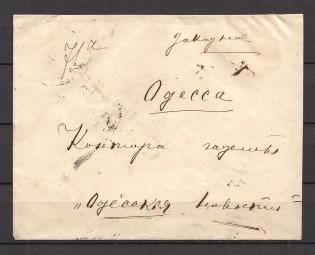 Заказное
Одесса
Контора газеты
"Одесския новости"